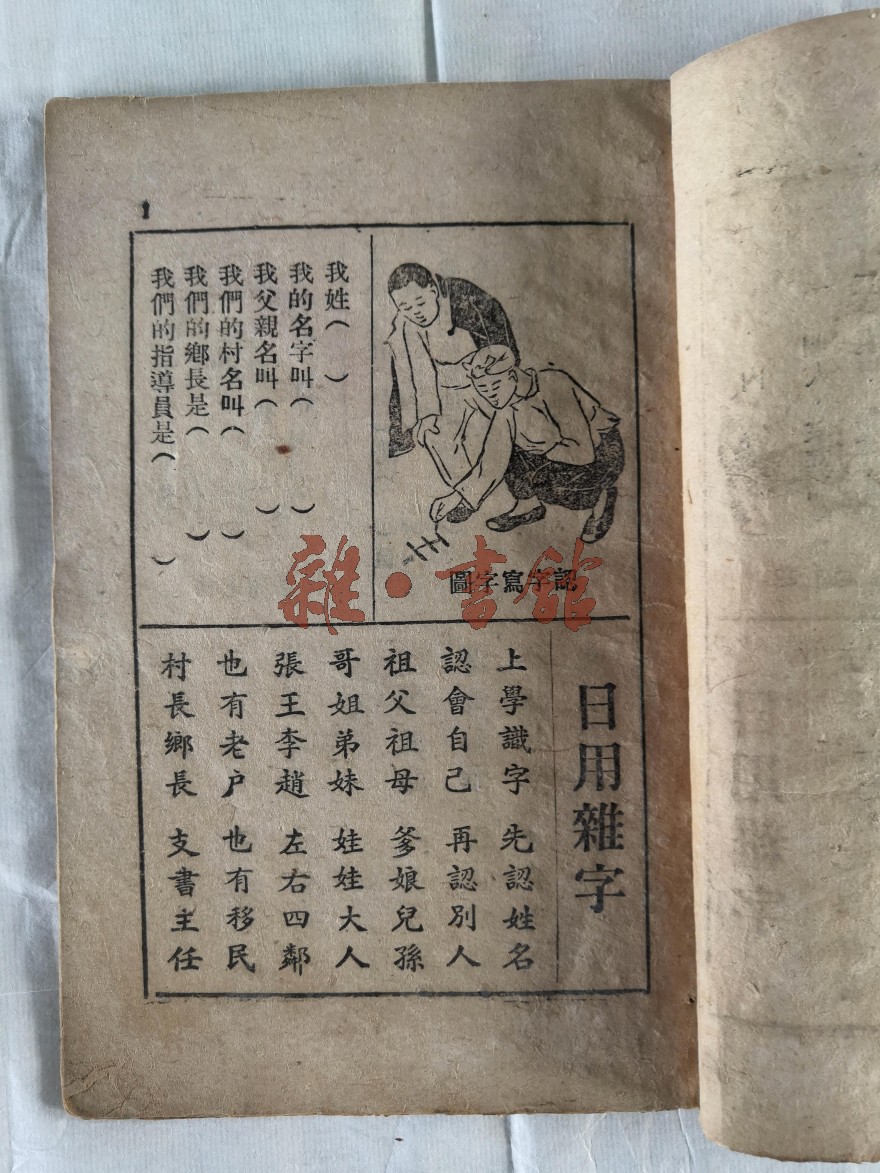 1
認字寫字圖
我姓（　）
我的名字叫（　）
我父親名叫（　）
我們的村名叫（　）
我們的鄉長是（　）
我們的指導員是（　）
日用雜字
上學識字 先認姓名
認會自己 再認別人
祖父祖母 爹娘兒孫
哥姐弟妹 娃娃大人
張王李趙 左右四鄰
也有老户 也有移民
村長鄉長 支書主任
雜·書館